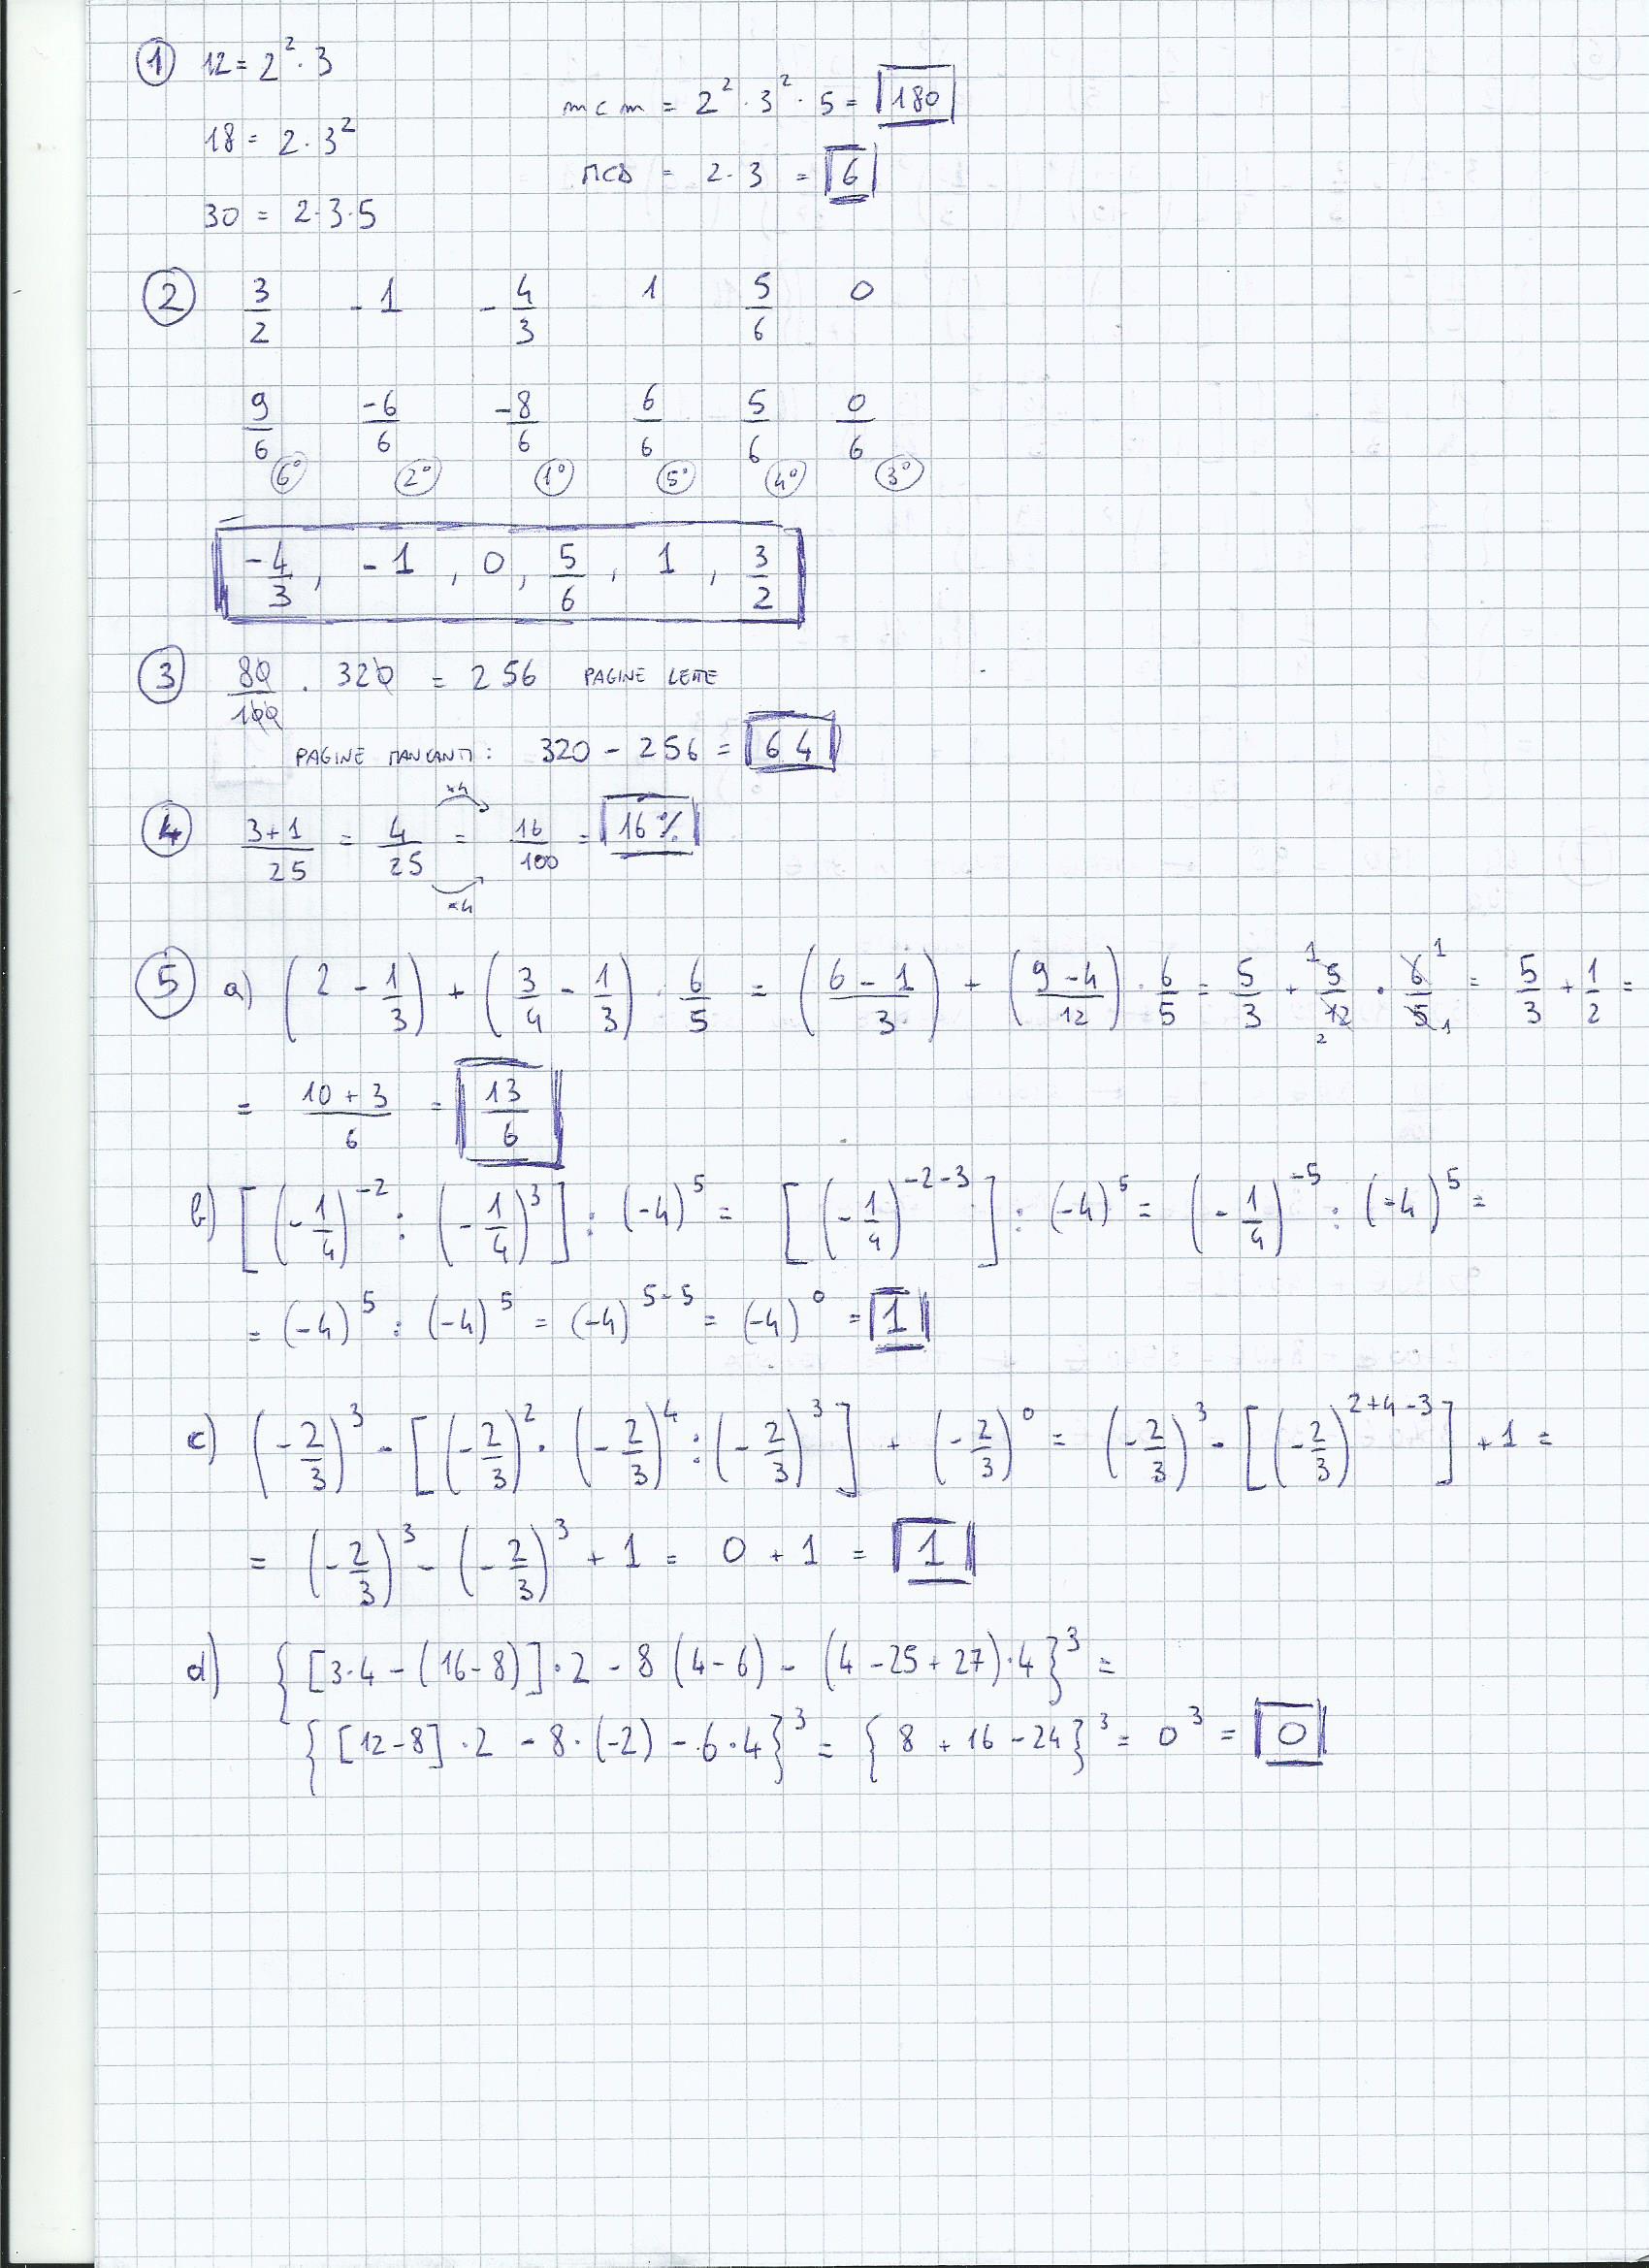 ① 12 = 2² · 3
mcm = 2² · 3² · 5 = 180
18 = 2 · 3²
MCD = 2 · 3 = 6
30 = 2·3·5
② 3/2 -1 -4/3 1 5/6 0
9/6 -6/6 -8/6 6/6 5/6 0/6
6° 2° 1° 5° 4° 3°
-4/3, -1, 0, 5/6, 1, 3/2
③ 80/100 · 320 = 256 PAGINE LETTE
PAGINE MANCANTI: 320 - 256 = 64
×4
④ (3+1)/25 = 4/25 = 16/100 = 16%
×4
⑤ a) (2 - 1/3) + (3/4 - 1/3) · 6/5 = ((6-1)/3) + ((9-4)/12) · 6/5 = 5/3 + 5/12 · 6/5 = 5/3 + 1/2 =
1 1 2 1
= (10+3)/6 = 13/6
b) [(-1/4)⁻² : (-1/4)³] : (-4)⁵ = [(-1/4)⁻²⁻³] : (-4)⁵ = (-1/4)⁻⁵ : (-4)⁵ =
= (-4)⁵ : (-4)⁵ = (-4)⁵⁻⁵ = (-4)⁰ = 1
c) (-2/3)³ - [(-2/3)² · (-2/3)⁴ : (-2/3)³] + (-2/3)⁰ = (-2/3)³ - [(-2/3)²⁺⁴⁻³] + 1 =
= (-2/3)³ - (-2/3)³ + 1 = 0 + 1 = 1
d) {[3·4 - (16-8)]·2 - 8(4-6) - (4-25+27)·4}³ =
{[12-8]·2 - 8·(-2) - 6·4}³ = {8 + 16 - 24}³ = 0³ = 0